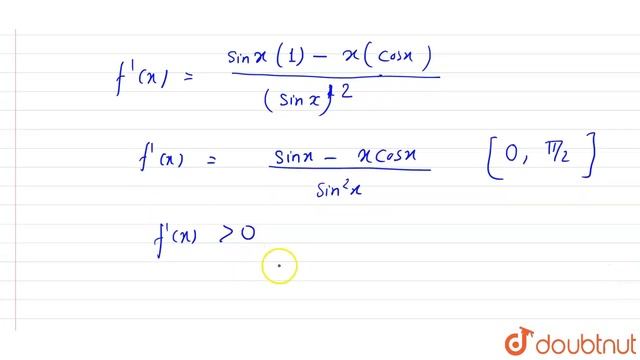 f'(x) = sinx(1) - x(cosx) / (sinx)^2
f'(x) = sinx - xcosx / sin²x [0, π/2]
f'(x) > 0
doubtnut